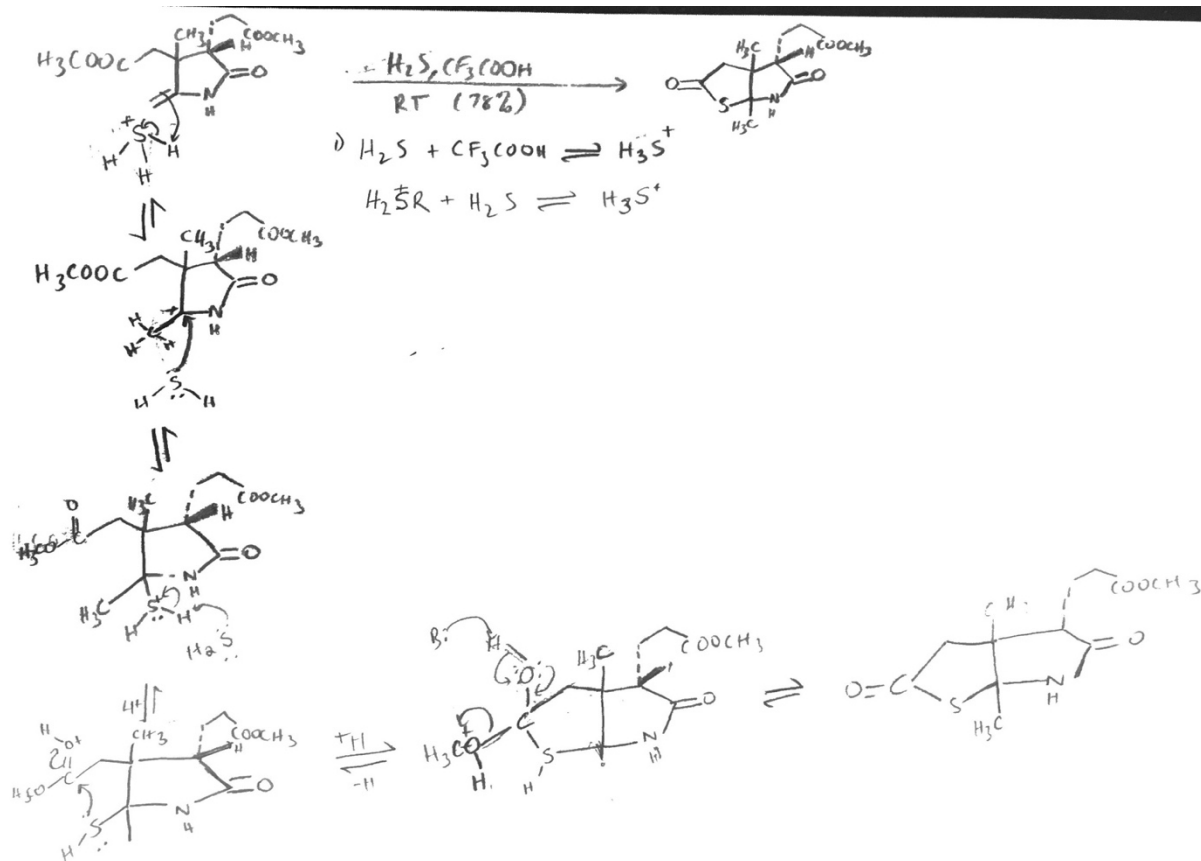 CH3
H
COOCH3
H3COOC
O
N
H
H2S, CF3COOH
RT (78%)
H3C
H
COOCH3
O
O
S
N
H
H3C
+
S
H
H
H
1) H2S + CF3COOH ⇌ H3S+
H2S+R + H2S ⇌ H3S+
CH3
COOCH3
H
H3COOC
O
+
N
H
H
C
H
H
S
H
H
O
H3C
COOCH3
H
C
H3CO
O
N
H
H3C
S+
H
H
H2S
H+
H
O+
CH3
COOCH3
H
C
H3CO
O
N
H
S
H
+H
-H
B:
H
O
H3C
COOCH3
C
O
H3CO
+
H
S
H
N
H
CH3
COOCH3
O
O=C
S
N
H
H3C